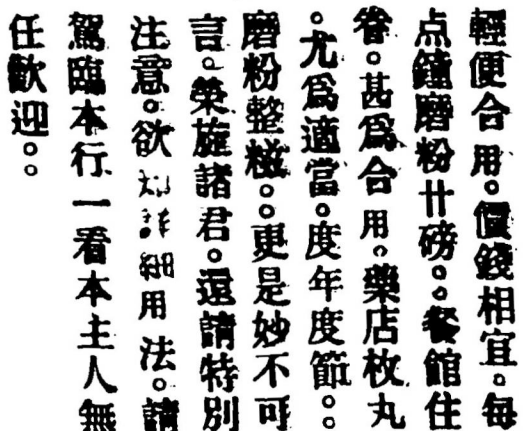 輕便合用。價錢相宜。每
点鐘磨粉廿磅。。餐館住
眷。甚爲合用。藥店枚丸
。尤爲適當。度年度節。。
磨粉整糍。。更是妙不可
言。榮旋諸君。還請特別
注意。欲知詳細用法。請
駕臨本行。一看本主人無
任歡迎。。